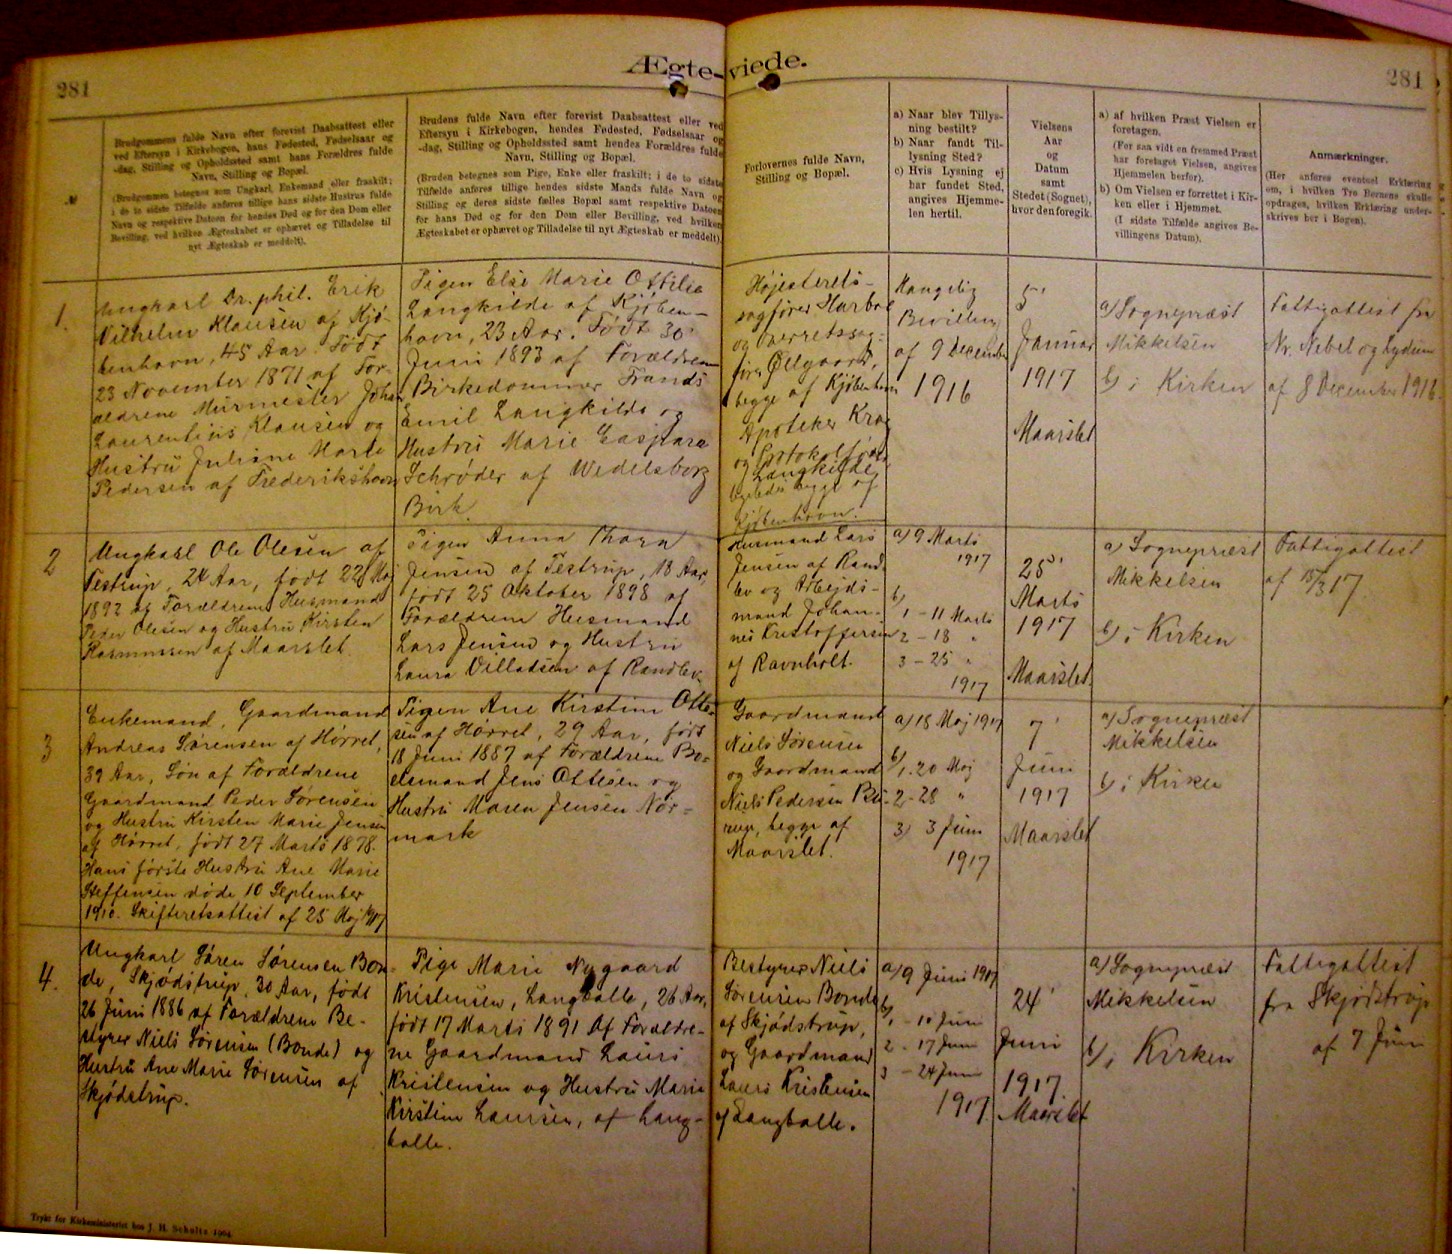 281
Ægte-viede.
281
№
Brudgommens fulde Navn efter forevist Daabsattest eller
ved Eftersyn i Kirkebogen, hans Fødested, Fødselsaar og
-dag, Stilling og Opholdssted samt hans Forældres fulde
Navn, Stilling og Bopæl.
(Brudgommen betegnes som Ungkarl, Enkemand eller fraskilt;
i de to sidste Tilfælde anføres tillige hans sidste Hustrus fulde
Navn og respektive Datoen for hendes Død og for den Dom eller
Bevilling, ved hvilken Ægteskabet er ophævet og Tilladelse til
nyt Ægteskab er meddelt).
Brudens fulde Navn efter forevist Daabsattest eller ved
Eftersyn i Kirkebogen, hendes Fødested, Fødselsaar og
-dag, Stilling og Opholdssted samt hendes Forældres fulde
Navn, Stilling og Bopæl.
(Bruden betegnes som Pige, Enke eller fraskilt; i de to sidste
Tilfælde anføres tillige hendes sidste Mands fulde Navn og
Stilling og deres sidste fælles Bopæl samt respektive Datoen
for hans Død og for den Dom eller Bevilling, ved hvilken
Ægteskabet er ophævet og Tilladelse til nyt Ægteskab er meddelt).
Forlovernes fulde Navn,
Stilling og Bopæl.
a) Naar blev Tillys-
ning bestilt?
b) Naar fandt Til-
lysning Sted?
c) Hvis Lysning ej
har fundet Sted,
angives Hjemme-
len hertil.
Vielsens
Aar
og
Datum
samt
Stedet (Sognet),
hvor den foregik.
a) af hvilken Præst Vielsen er
foretagen.
(For saa vidt en fremmed Præst
har foretaget Vielsen, angives
Hjemmelen herfor).
b) Om Vielsen er forrettet i Kir-
ken eller i Hjemmet.
(I sidste Tilfælde angives Be-
villingens Datum).
Anmærkninger.
(Her anføres eventuel Erklæring
om, i hvilken Tro Børnene skulle
opdrages, hvilken Erklæring under-
skrives her i Bogen).
1.
Ungkarl Dr. phil. Erik
Vilhelm Klausen af Kjø-
benhavn, 45 Aar. Født
23 November 1871 af For-
ældrene Murmester Johan
Laurentius Klausen og
Hustru Juliane Marie
Pedersen af Frederikshavn
Pigen Else Marie Ottilia
Langkilde af Kjøben-
havn, 23 Aar. Født 30'
Juni 1893 af Forældrene
Birkedommer Frands
Emil Langkilde og
Hustru Marie Caspara
Schrøder af Wedelsborg
Birk.
Højesterets-
sagfører Harboe
og Overretssag-
fører Ølgaard,
begge af Kjøbenhavn
Apoteker Krag
og Protokolfører
Langkilde
begge af
Kjøbenhavn.
Kongelig
Bevilling
af 9 December
1916
5'
Januar
1917
Maarslet
a) Sognepræst
Mikkelsen
b) i Kirken
Fattigattest fra
Nr. Nebel og Lydum
af 8 December 1916.
2
Ungkarl Ole Olesen af
Testrup, 24 Aar, født 22 Maj
1892 af Forældrene Husmand
Peder Olesen og Hustru Kirsten
Rasmussen af Maarslet.
Pigen Anna Thora
Jensen af Testrup, 18 Aar,
født 25 Oktober 1898 af
Forældrene Husmand
Lars Jensen og Hustru
Laura Villadsen af Randlev.
Husmand Lars
Jensen af Rand-
lev og Arbejds-
mand Johan-
nes Kristoffersen
af Ravnholt.
a) 9 Marts
1917
b)
1 - 11 Marts
2 - 18 "
3 - 25 "
1917
25'
Marts
1917
Maarslet.
a) Sognepræst
Mikkelsen
b) i Kirken
Fattigattest
af 15/3 17.
3
Enkemand, Gaardmand
Andreas Sørensen af Hørret,
39 Aar, Søn af Forældrene
Gaardmand Peder Sørensen
og Hustru Kirsten Marie Jensen
af Hørret, født 27 Marts 1878.
Hans første Hustru Ane Marie
Steffensen døde 10 September
1910. Skifteretsattest af 25 Maj 1917
Pigen Ane Kirstine Otte-
sen af Hørret, 29 Aar, født
18 Juni 1887 af Forældrene Bo-
elsmand Jens Ottesen og
Hustru Maren Jensen Nor-
mark
Gaardmand
Niels Sørensen
og Gaardmand
Niels Pedersen Pe-
rup, begge af
Maarslet.
a) 18 Maj 1917
b)
1. 20 Maj
2 - 28 "
3) 3 Juni
1917
7'
Juni
1917
Maarslet
a) Sognepræst
Mikkelsen
b) i Kirken
4.
Ungkarl Søren Sørensen Bon-
de, Skjødstrup, 30 Aar, født
26 Juni 1886 af Forældrene Be-
styrer Niels Sørensen (Bonde) og
Hustru Ane Marie Sørensen af
Skjødstrup.
Pige Marie Nygaard
Kristensen, Langballe, 26 Aar,
født 17 Marts 1891 af Forældre-
ne Gaardmand Laurs
Kristensen og Hustru Marie
Kirstine Laursen, af Lang-
balle.
Bestyrer Niels
Sørensen Bonde
af Skjødstrup,
og Gaardmand
Laurs Kristensen
af Langballe.
a) 9 Juni 1917
b)
1 - 10 Juni
2 - 17 Juni
3 - 24 Juni
1917
24'
Juni
1917.
Maarslet
a) Sognepræst
Mikkelsen
b) i Kirken
Fattigattest
fra Skjødstrup
af 7 Juni
Trykt for Kirkeministeriet hos J. H. Schultz 1904.